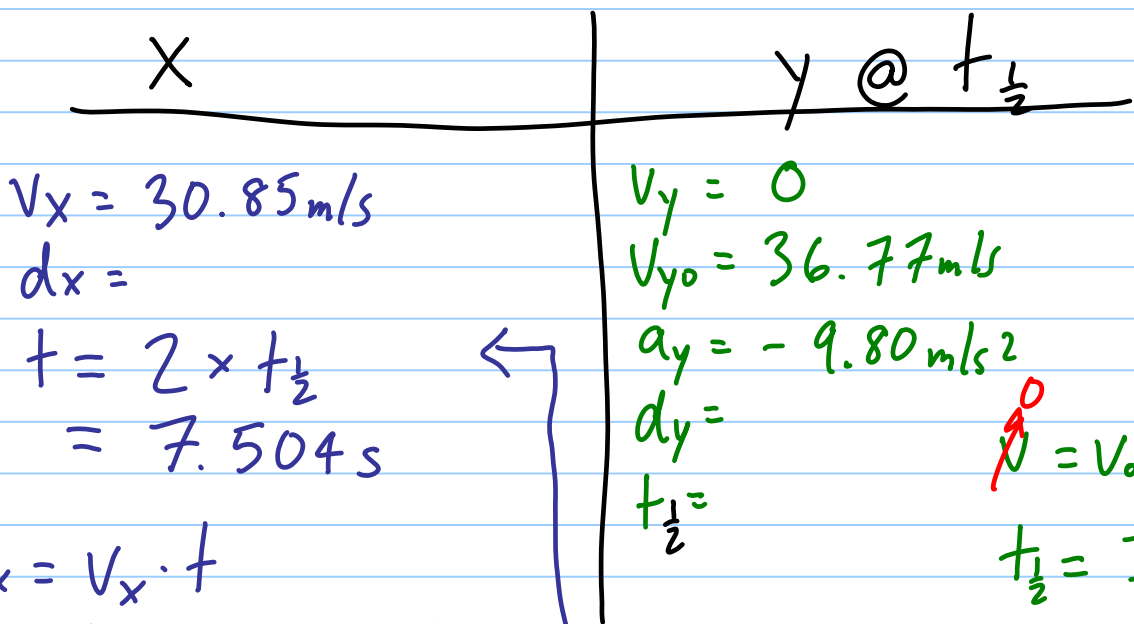 x
y @ t½
Vx = 30.85 m/s
dx =
t = 2 × t½
= 7.504 s
x = Vx · t
Vy = 0
Vyo = 36.77 m/s
ay = - 9.80 m/s²
dy =
t½ =
0
V = Vo
t½ =